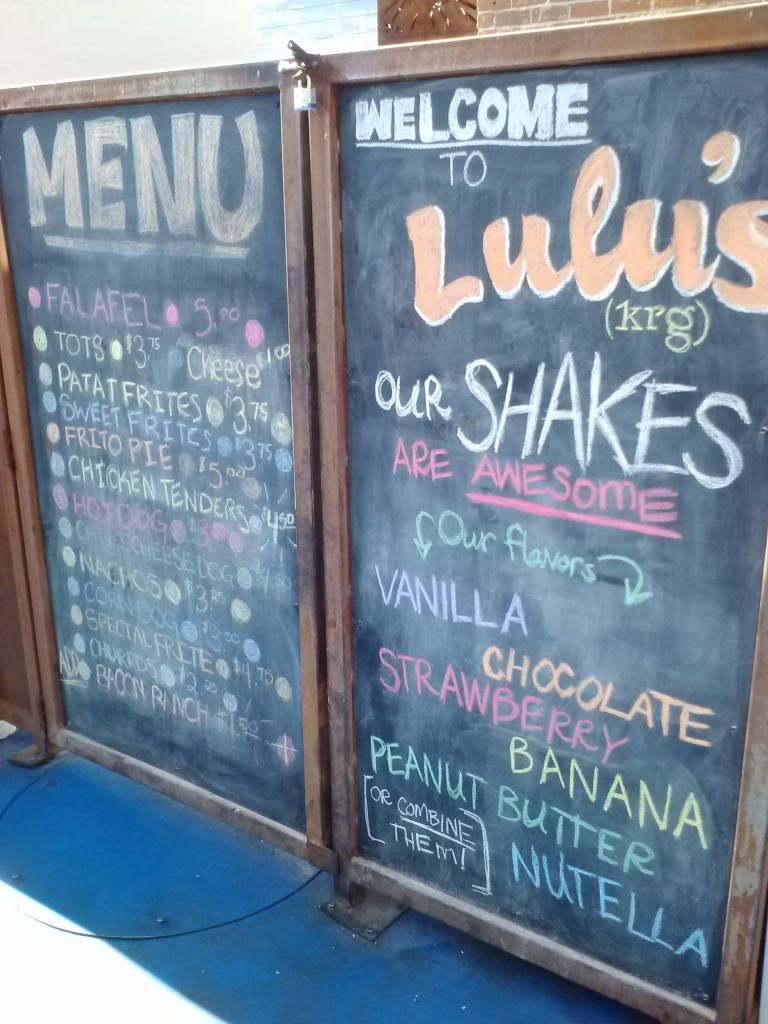 MENU
FALAFEL 5.00
TOTS $3.75 Cheese $1.00
PATAT FRITES $3.75
SWEET FRITES $3.75
FRITO PIE $5.00
CHICKEN TENDERS $4.50
HOT DOG $3.00
CHEESE DOG $4.50
NACHOS $3.25
CORN DOG $3.50
SPECIAL FRITE $4.75
CHURROS $2.00
ADD BACON RANCH $1.50
WELCOME
TO
Lulu's
(krg)
OUR SHAKES
ARE AWESOME
Our flavors
VANILLA
CHOCOLATE
STRAWBERRY
BANANA
PEANUT BUTTER
[OR COMBINE
THEM!]
NUTELLA